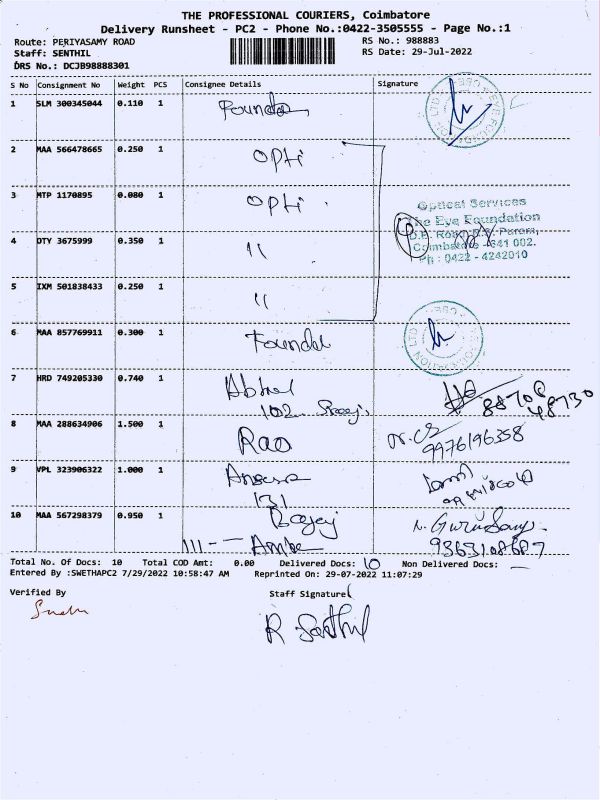 THE PROFESSIONAL COURIERS, Coimbatore
Delivery Runsheet - PC2 - Phone No.:0422-3505555 - Page No.:1
Route: PERIYASAMY ROAD RS No.: 988883
Staff: SENTHIL RS Date: 29-Jul-2022
DRS No.: DCJB98888301
S No Consignment No Weight PCS Consignee Details Signature
1 SLM 300345044 0.110 1
2 MAA 566478665 0.250 1 Opti
3 MTP 1170895 0.080 1 Opti
Optical Services
The Eye Foundation
D.B. Road, R.S. Puram,
Coimbatore - 641 002.
Ph : 0422 - 4242010
4 DTY 3675999 0.350 1 "
5 IXM 501838433 0.250 1 "
6 MAA 857769911 0.300 1
7 HRD 749205330 0.740 1
102
8 MAA 288634906 1.500 1 Rao
9976196358
9 VPL 323906322 1.000 1
131
10 MAA 567298379 0.950 1
9363108687
Total No. Of Docs: 10 Total COD Amt: 0.00 Delivered Docs: 10 Non Delivered Docs: —
Entered By :SWETHAPC2 7/29/2022 10:58:47 AM Reprinted On: 29-07-2022 11:07:29
Verified By Staff Signature
R Senthil